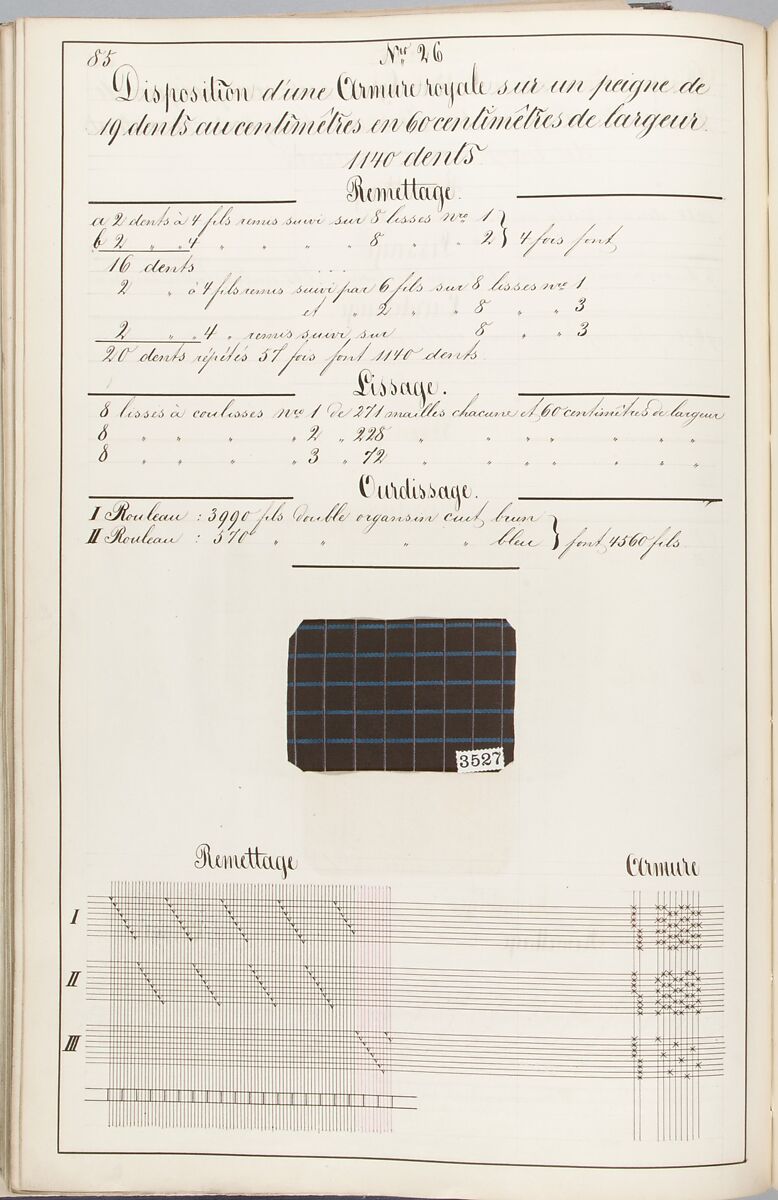 85
Nro 26
Disposition d'une Armure royale sur un peigne de
19 dents au centimêtres en 60 centimêtres de largeur.
1140 dents
Remettage.
a 2 dents à 4 fils remis suivi sur 8 lisses nro 1
b 2 " " 4 " " " " 8 " " 2 } 4 fois font
16 dents
2 " à 4 fils remis suivi par 6 fils sur 8 lisses nro 1
et " 2 " " 8 " " 3
2 " " 4 " remis suivi sur 8 " " 3
20 dents répétés 57 fois font 1140 dents.
Lissage.
8 lisses à coulisses nro 1 de 271 mailles chacune et 60 centimêtres de largeur
8 " " " " 2 " 228 " " " " " " "
8 " " " " 3 " 72 " " " " " " "
Ourdissage.
I Rouleau : 3990 fils double organsin cuit brun
II Rouleau : 570 " " " " bleu } font 4560 fils.
3527
Remettage
Armure
I
II
III